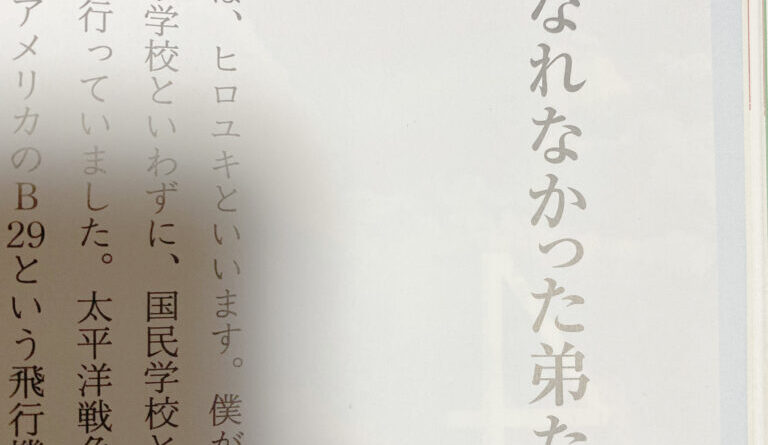 なれなかった弟た
は、ヒロユキといいます。僕が
学校といわずに、国民学校と
行っていました。太平洋戦争
アメリカのB29という飛行機